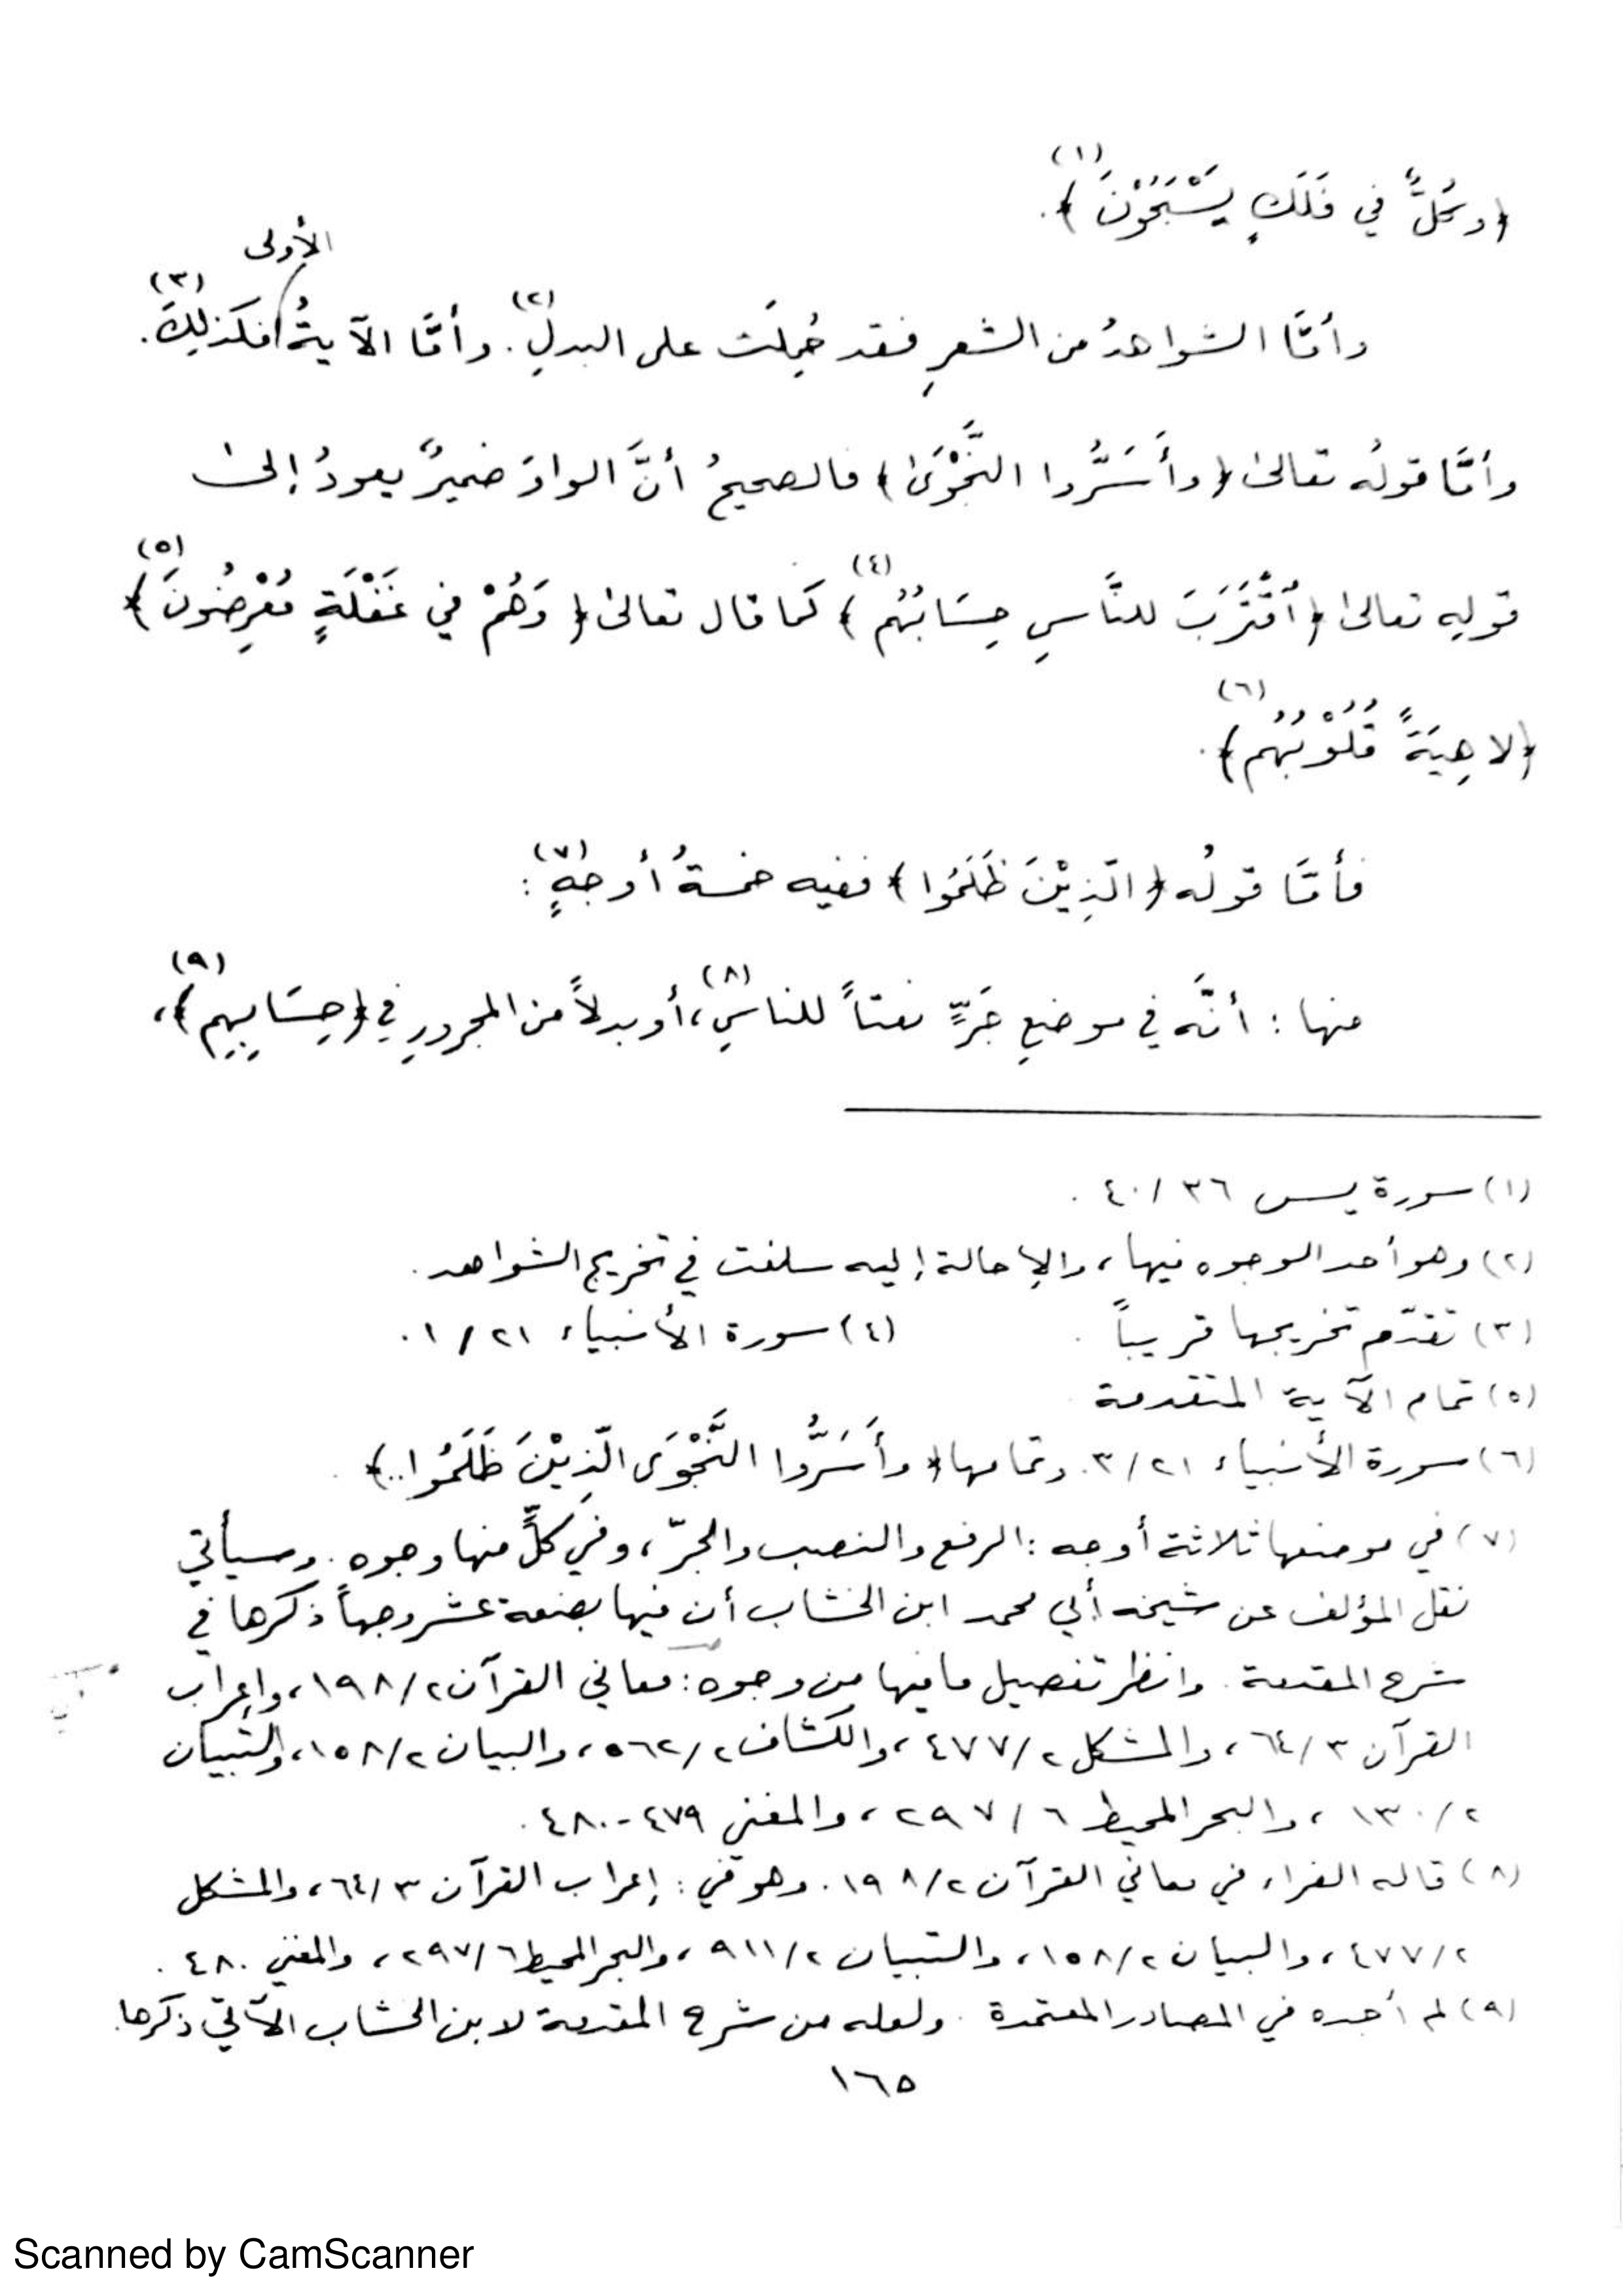 ﴿وكُلٌّ في فَلَكٍ يَسْبَحُوْنَ﴾(١).
وأمَّا الشواهدُ من الشعرِ فقد حُمِلَت على البدلِ(٢). وأمَّا الآيةُ الأولى فكذلِكَ(٣).
وأمَّا قولُه تعالىٰ ﴿وأَسَرُّوا النَّجْوَىٰ﴾ فالصحيحُ أنَّ الواوَ ضميرٌ يعودُ إلىٰ
قولِه تعالىٰ ﴿ٱقْتَرَبَ للنَّاسِ حِسَابُهُم﴾(٤) كما قال تعالىٰ ﴿وَهُمْ في غَفْلَةٍ مُعْرِضُونَ﴾(٥)
﴿لاهِيَةً قُلُوْبُهُم﴾(٦).
فأمَّا قولُه ﴿الّذِيْنَ ظَلَمُوا﴾ ففيه خمسةُ أوجهٍ(٧):
منها: أنَّه في موضعِ جَرٍّ نعتاً للناسِ(٨)، أو بدلاً من المجرورِ في ﴿حِسَابِهِم﴾(٩)،
(١) سورة يس ٣٦/٤٠.
(٢) وهو أحد الوجوه فيها، والإحالة إليه سلفت في تخريج الشواهد.
(٣) تقدّم تخريجها قريباً. (٤) سورة الأنبياء ٢١/١.
(٥) تمام الآية المتقدمة
(٦) سورة الأنبياء ٢١/٣. وتمامها ﴿وأَسَرُّوا النَّجْوَى الّذِيْنَ ظَلَمُوا..﴾.
(٧) في موضعها ثلاثة أوجه: الرفع والنصب والجرّ، وفي كلٍّ منها وجوه. وسيأتي
نقل المؤلف عن شيخه أبي محمد ابن الخشاب أن فيها بضعة عشر وجهاً ذكرها في
شرح المقدمة. وانظر تفصيل ما فيها من وجوه: معاني القرآن ٢/١٩٨، وإعراب
القرآن ٣/٦٤، والمشكل ٢/٤٧٧، والكشاف ٢/٥٦٢، والبيان ٢/١٥٨، والتبيان
٢/١٣٠، والبحر المحيط ٦/٢٩٧، والمغني ٤٧٩-٤٨٠.
(٨) قاله الفراء في معاني القرآن ٢/١٩٨. وهو في: إعراب القرآن ٣/٦٤، والمشكل
٢/٤٧٧، والبيان ٢/١٥٨، والتبيان ٢/٩١١، والبحر المحيط ٦/٢٩٧، والمغني ٤٨٠.
(٩) لم أجده في المصادر المعتمدة. ولعله من شرح المقدمة لابن الخشاب الآتي ذكرها.
١٦٥
Scanned by CamScanner